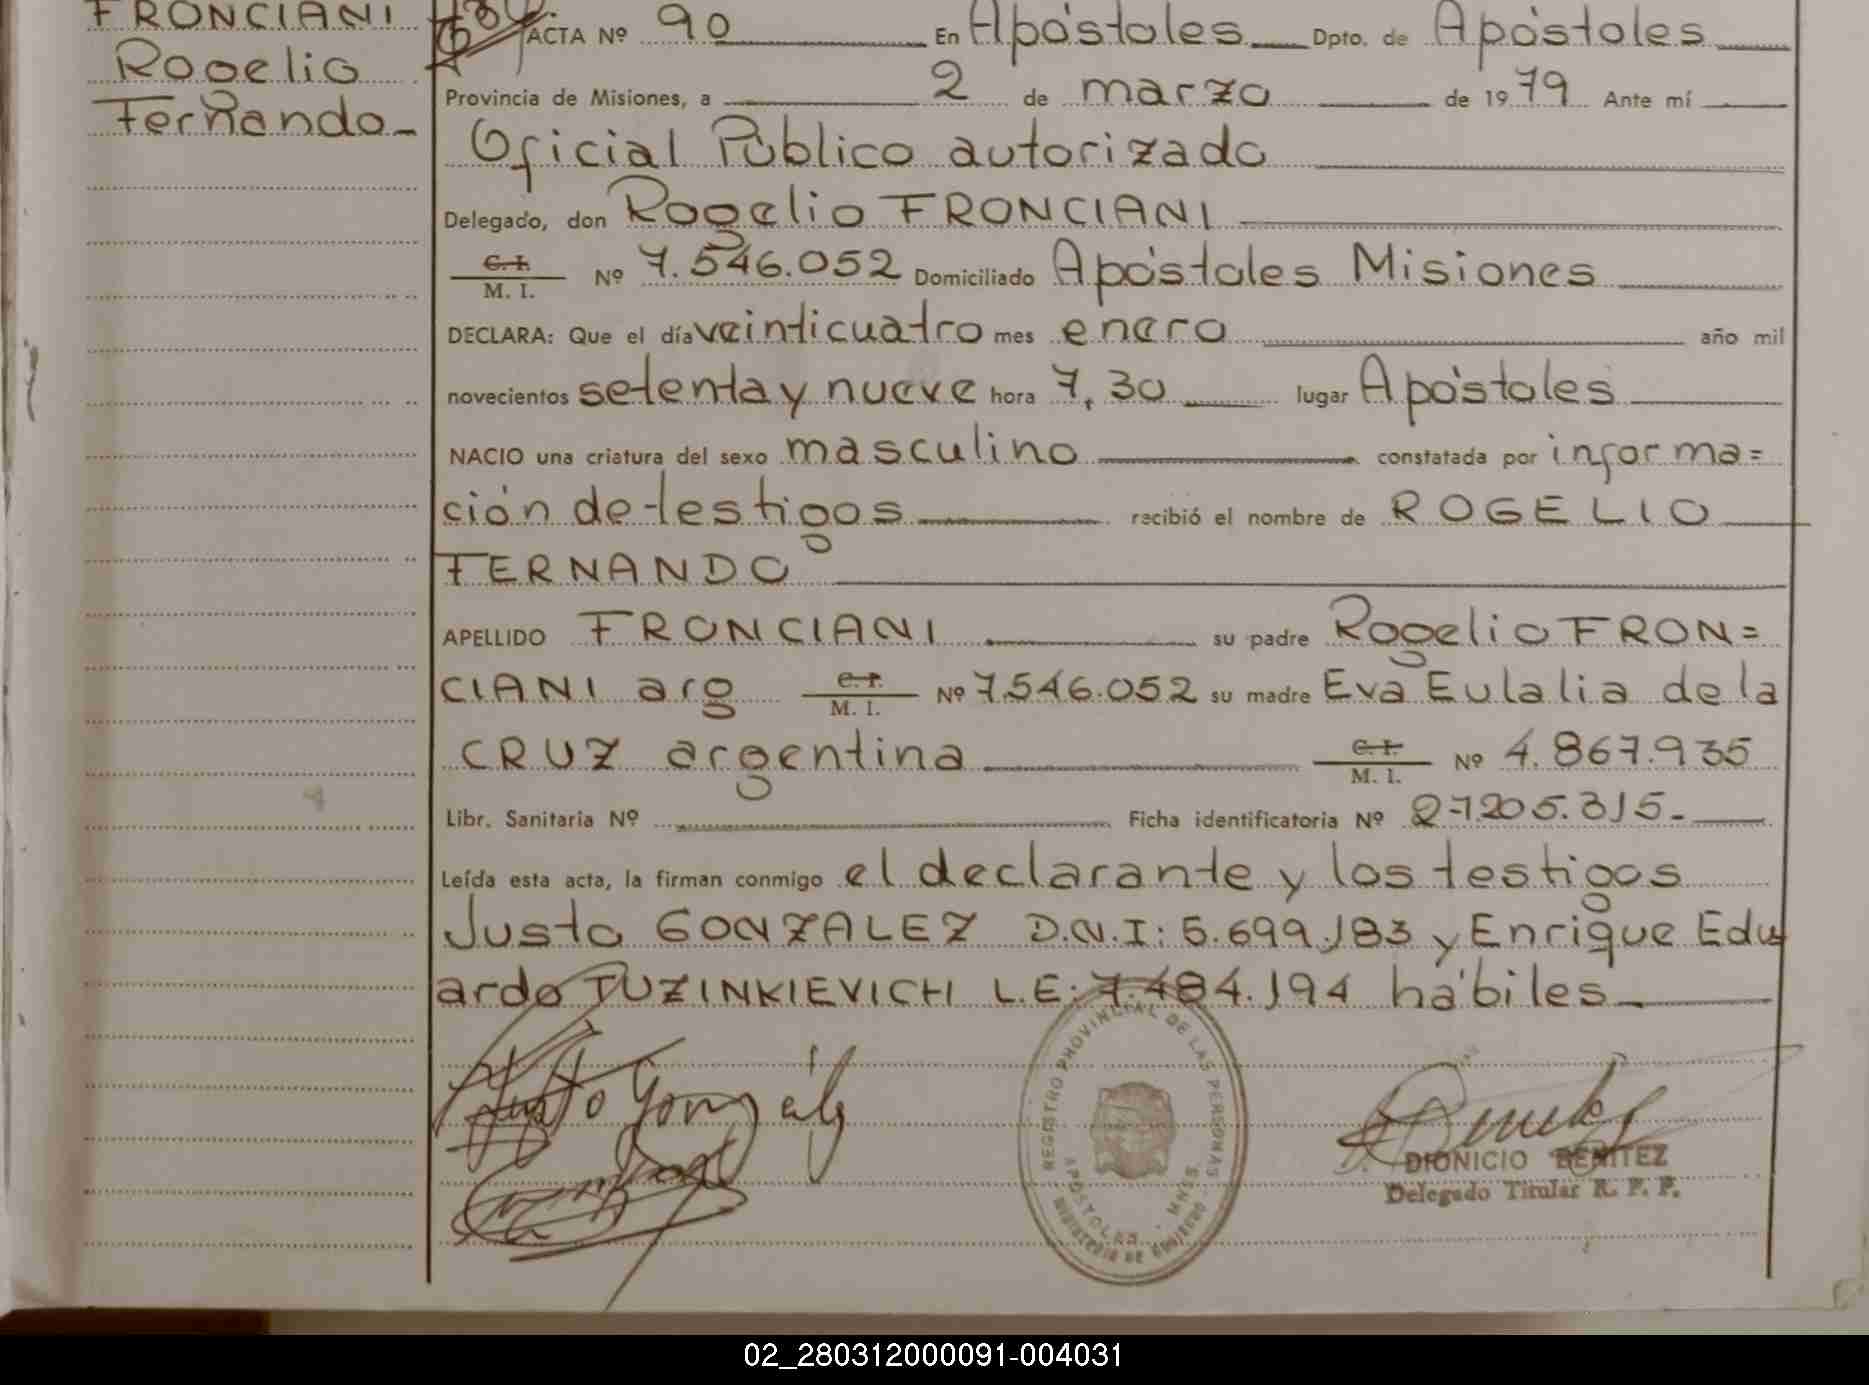 FRONCIANI
Rogelio
Fernando
ACTA Nº 90 En Apóstoles Dpto. de Apóstoles
Provincia de Misiones, a 2 de marzo de 1979 Ante mí
Oficial Público autorizado
Delegado, don Rogelio FRONCIANI
C.I. / M. I. Nº 7.546.052 Domiciliado Apóstoles Misiones
DECLARA: Que el día veinticuatro mes enero año mil
novecientos setenta y nueve hora 7,30 lugar Apóstoles
NACIO una criatura del sexo masculino constatada por informa=
ción de testigos recibió el nombre de ROGELIO
FERNANDO
APELLIDO FRONCIANI su padre Rogelio FRON=
CIANI arg C.I. / M. I. Nº 7.546.052 su madre Eva Eulalia de la
CRUZ argentina C.I. / M. I. Nº 4.867.935
Libr. Sanitaria Nº Ficha identificatoria Nº 27205.315.-
Leída esta acta, la firman conmigo el declarante y los testigos
Justo GONZALEZ D.N.I: 5.699.183 y Enrique Edu
ardo TUZINKIEVICH L.E: 7.484.194 hábiles
Justo González
REGISTRO PROVINCIAL DE LAS PERSONAS
APOSTOLES - MNES.
MINISTERIO DE GOBIERNO
DIONICIO BENITEZ
Delegado Titular R. P. P.
02_280312000091-004031